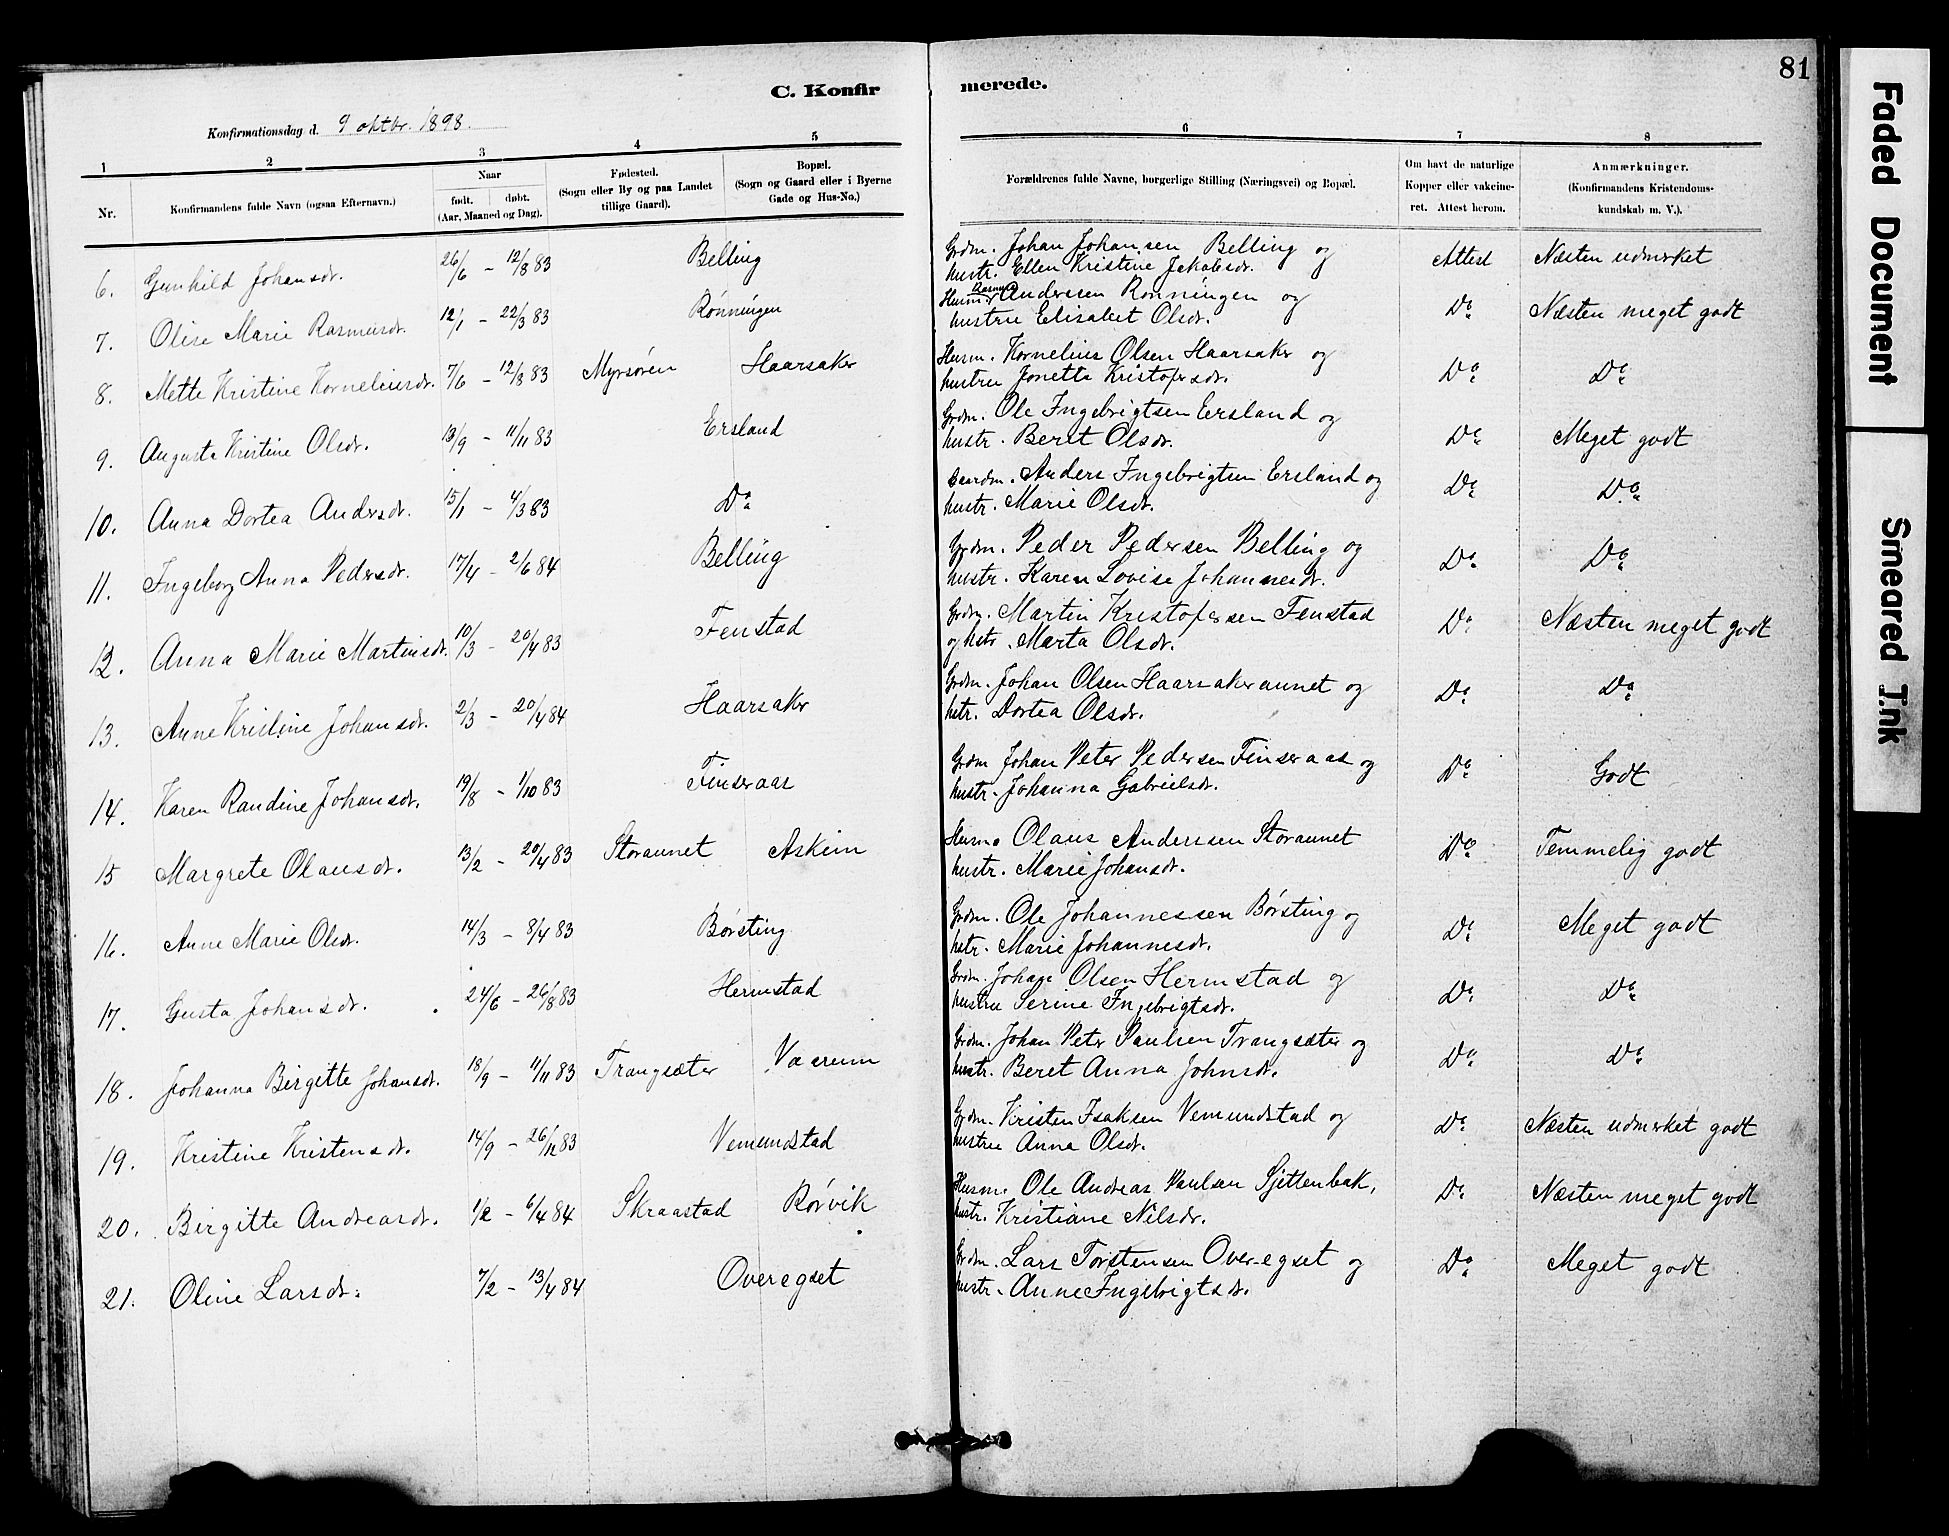 81
C. Konfirmerede.
Konfirmationsdag d. 9 oktbr. 1898.
1 2 3 4 5 6 7 8
Nr.
Konfirmandens fulde Navn (ogsaa Efternavn.)
Naar
født. døbt.
(Aar, Maaned og Dag).
Fødested.
(Sogn eller By og paa Landet
tillige Gaard).
Bopæl.
(Sogn og Gaard eller i Byerne
Gade og Hus-No.)
Forældrenes fulde Navne, borgerlige Stilling (Næringsvei) og Bopæl.
Om havt de naturlige
Kopper eller vakcine-
ret. Attest herom.
Anmærkninger.
(Konfirmandens Kristendoms-
kundskab m. V.).
6. Gunhild Johansdr. 26/6 - 12/8 83 Belling Grdm. Johan Johansen Belling og Attest Næsten udmerket
hustr. Ellen Kristine Jakobsdr.
7. Oline Marie Rasmusdr. 12/1 - 22/3 83 Rønningen Husm. Rasmus Andersen Rønningen og Do. Næsten meget godt
hustru Elisabet Olsdr.
8. Mette Kristine Korneliusdr. 7/6 - 12/8 83 Myrsøren Haarsaker Husm. Kornelius Olsen Haarsaker og Do. Do.
hustru Jonetta Kristofersdr.
9. Augusta Kristine Olsdr. 13/9 - 11/11 83 Ersland Grdm. Ole Ingebrigtsen Eersland og Do. Meget godt
hustr. Beret Olsdr.
10. Anna Dortea Andersdr. 15/1 - 4/3 83 Do. Gaardm. Anders Ingebrigtsen Ersland og Do. Do.
hustr. Marie Olsdr.
11. Ingeborg Anna Pedersdr. 17/4 - 2/6 84 Belling Grdm. Peder Pedersen Belling og Do. Do.
hustr. Karen Lovise Johannesdr.
12. Anna Marie Martinsdr. 10/3 - 20/4 83 Fenstad Grdm. Martin Kristofersen Fenstad Do. Næsten meget godt
og hstr. Marta Olsdr.
13. Anne Kristine Johansdr. 2/3 - 20/4 84 Haarsaker Grdm. Johan Olsen Haarsakeraunet og Do. Do.
hstr. Dortea Olsdr.
14. Karen Randine Johansdr. 19/8 - 1/10 83 Finseraas Grdm Johan Peter Pedersen Finseraas og Do. Godt
hustr. Johanna Gabrielsdr.
15 Margrete Olausdr. 13/2 - 20/4 83 Storaunet Askim Husm. Olaus Anderssen Storaunet Do. Temmelig godt
hustr. Marie Johansdr.
16. Anne Marie Olsdr. 14/3 - 8/4 83 Børsting Grdm. Ole Johannessen Børsting og Do. Meget godt
hstr. Marie Johannesdr.
17. Gusta Johansdr. 24/6 - 26/8 83 Hermstad Grdm. Johan Olsen Hermstad og Do. Do.
hustru Serine Ingebrigtsdr.
18. Johanna Birgitte Johansdr. 18/9 - 11/11 83 Trangsæter Vaarum Grdm. Johan Peter Paulsen Trangsæter og Do. Do.
hustr. Beret Anna Johnsdr.
19. Kristine Kristensdr. 14/9 - 26/12 83 Vemundstad Grdm. Kristen Isaksen Vemundstad og Do. Næsten udmerket godt
hustru Anna Olsdr.
20. Birgitte Andreasdr. 1/2 - 6/4 84 Skraastad Rørvik Husm. Ole Andreas Paulsen Sjittenbak, Do. Næsten meget godt
hustr. Kristiane Nilsdr.
21. Oline Larsdr. 7/2 - 13/4 84 Overegset Grdm. Lars Torstensen Overegset og Do. Meget godt
hustr. Anne Ingebrigtsdr.
Faded Document
Smeared Ink